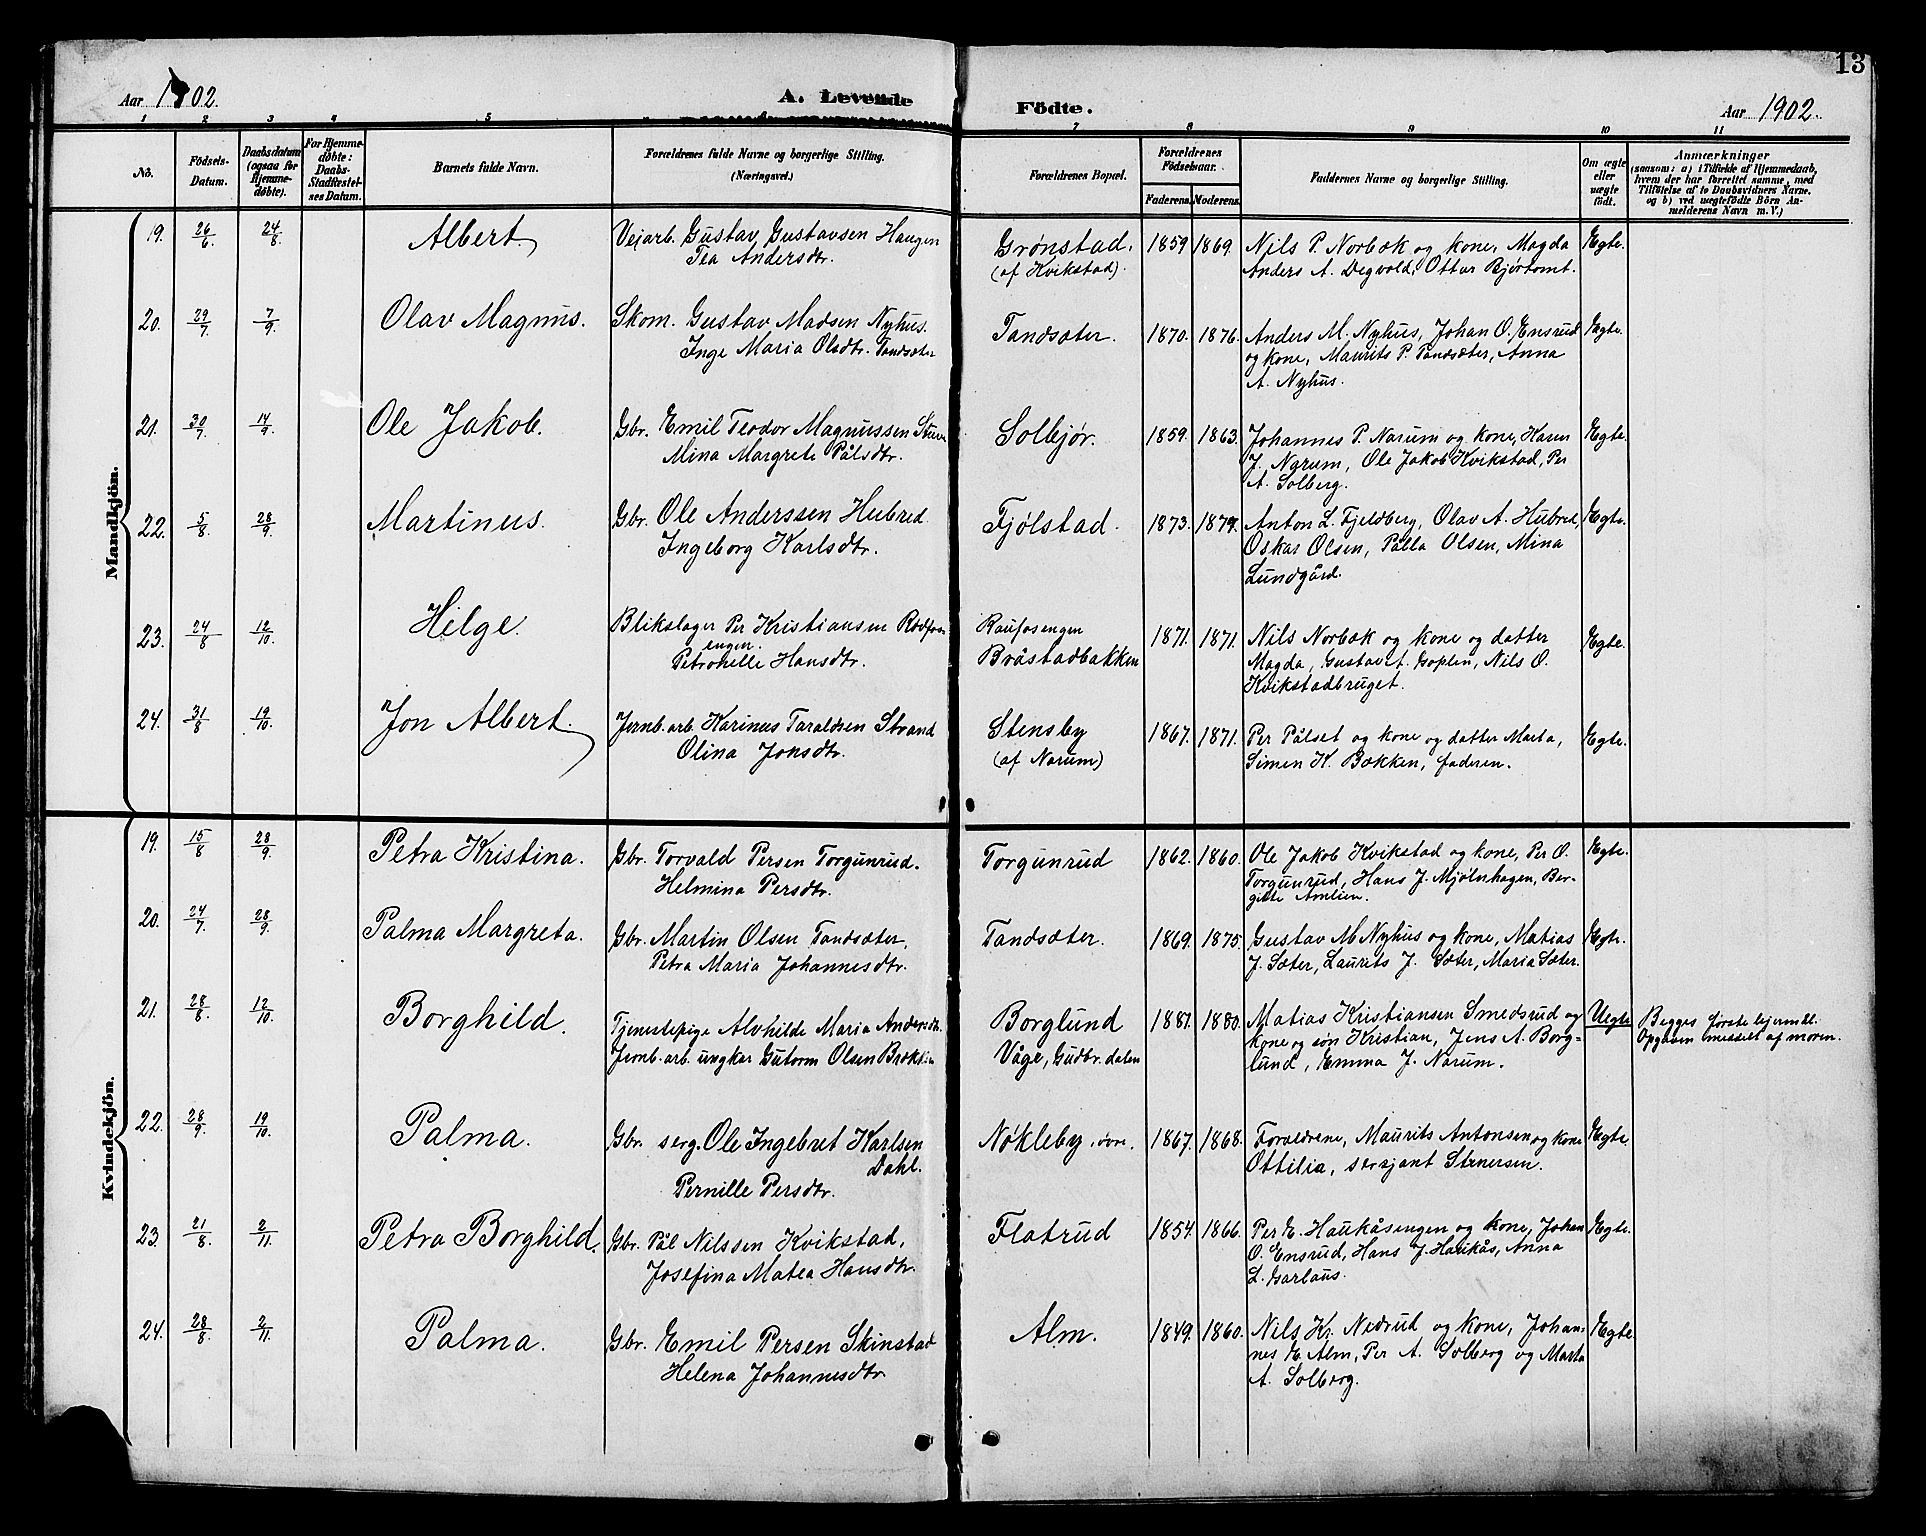 13
Aar 1902.
A. Levende
Födte.
Aar 1902.
1 2 3 4 5 6 7 8 9 10 11
No.
Födsels-Datum.
Daabsdatum (ogsaa for Hjemmedøbte).
For Hjemmedøbte: Daabs-Stadfæstelses Datum.
Barnets fulde Navn.
Forældrenes fulde Navne og borgerlige Stilling.
(Næringsvei.)
Forældrenes Bopæl.
Forældrenes Födselsaar.
Faderens. Moderens.
Faddernes Navne og borgerlige Stilling.
Om ægte eller uægte födt.
Anmærkninger
(saasom: a) i Tilfælde af Hjemmedaab,
hvem der har forrettet samme, med
Tilföielse af to Daabsvidners Navne,
og b) ved uægtefödte Börn An-
melderens Navn m. V.)
Mandkjön.
19. 26/6 24/8. Albert Veiarb. Gustav Gustavsen Haugen Grønstad. 1859 1869. Nils P. Norbæk og kone, Magda Egte.
Tea Andersdtr. (af Kvikstad). Anders A. Degvold, Ottar Bjørtomt.
20. 29/7 7/9. Olav Magnus. Skom. Gustav Madsen Nyhus. Tandsæter. 1870. 1876. Anders M. Nyhus, Johan O. Ensrud Egte.
Inge Maria Olsdtr. Tandsæter og kone, Maurits P. Tandsæter, Anna
A. Nyhus.
21. 30/7 14/9. Ole Jakob. Gbr. Emil Teodor Magnussen Solbjør. 1859. 1863. Johannes P. Narum og kone, Karen Egte.
Mina Margrete Pålsdtr. J. Narum, Ole Jakob Kvikstad, Per
A. Solberg.
22. 5/8 28/9. Martinus. Gbr. Ole Anderssen Hubred. Fjølstad. 1873. 1879. Anton L. Fjeldberg, Olav A. Hubred, Egte.
Ingeborg Karlsdtr. Oskar Olsen, Pålla Olsen, Mina
Lundgård.
23. 24/8 12/10. Helge. Blikslager Per Kristiansen Raufos- Raufosengen 1871. 1871. Nils Norbæk og kone og datter Egte.
engen.
Petronelle Hansdtr. Bråstadbakken Magda, Gustav t. Goplen, Nils O.
Kvikstadbruget.
24. 31/8 19/10. Jon Albert. Jernb. arb. Karinus Taraldsen Strand Stensby 1867. 1871. Per Pålset og kone og datter Marta, Egte.
Olina Jonsdtr. (af Narum) Simen K. Bakken, faderen.
Kvindekjön.
19. 15/8 28/9. Petra Kristina. Gbr. Torvald Persen Torgunrud. Torgunrud 1862. 1860. Ole Jakob Kvikstad og kone, Per O. Egte.
Helmina Persdtr. Torgunrud, Hans J. Mjølnhagen, Ber-
gitte Amlien.
20. 24/7. 28/9. Palma Margreta. Gbr. Martin Olsen Tandsæter, Tandsæter. 1869. 1875. Gustav M. Nyhus og kone, Matias Egte.
Petra Maria Johannesdtr. J. Sæter, Laurits J. Sæter, Maria Sæter.
21. 28/8. 12/10. Borghild. Tjenestepige Alvhilde Maria Andersdtr. Borglund 1881. 1880. Matias Kristiansen Smedsrud og Uegte Begges første leiermål.
Jernb. arb. ungkar Gutorm Olsen Våge, Gudbr. dalen kone og søn Kristian, Jens A. Borg- Opgaven meddelt af moren.
lund, Emma J. Narum.
22. 28/9. 19/10. Palma. Gbr. serg. Ole Ingebret Karlsen Nøkleby, øvre. 1867. 1868. Forældrene, Maurits Antonsen og kone Egte.
Dahl. Ottilia, sersjant Stenersen.
Pernille Persdtr.
23. 21/8. 2/11. Petra Borghild. Gbr. Pål Nilssen Kvikstad, Flatrud 1854. 1866. Per E. Haukåsengen og kone, Johan Egte.
Josefina Matea Hansdtr. O. Ensrud, Hans J. Haukås, Anna
L. Garlaus.
24. 28/8. 2/11. Palma. Gbr. Emil Persen Skinstad Alm. 1849. 1860. Nils Kr. Nedrud og kone, Johan- Egte
Helena Johannesdtr. nes E. Alm, Per A. Solberg og Marta
A. Solberg.